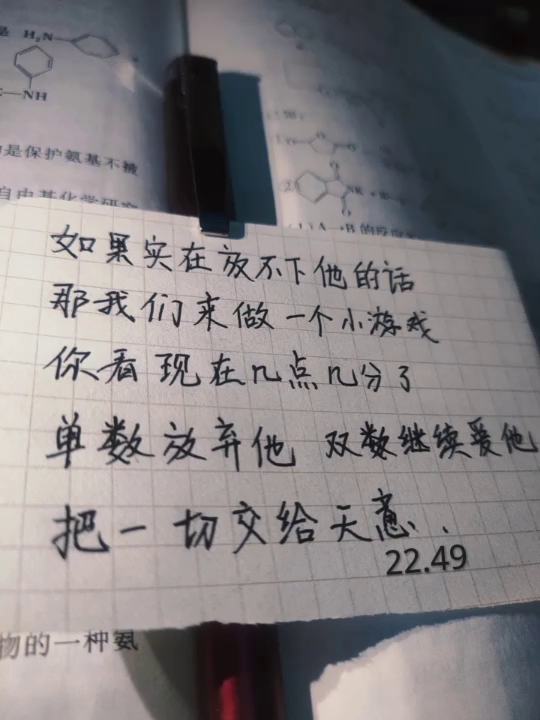 H₂N
C—NH
是保护氨基不被
自由基化学研究
如果实在放不下他的话
那我们来做一个小游戏
你看现在几点几分了
单数放弃他 双数继续爱他
把一切交给天意..
22.49
物的一种氨